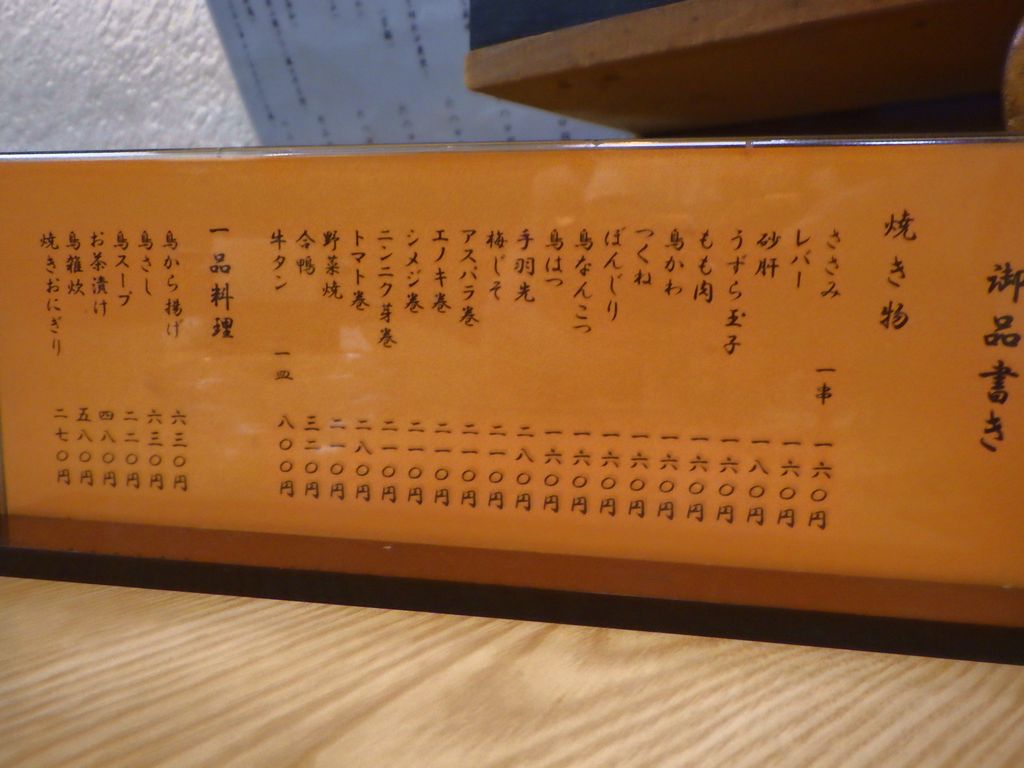 御品書き
焼き物
ささみ 一串 一六〇円
レバー 一六〇円
砂肝 一八〇円
うずら玉子 一六〇円
もも肉 一六〇円
鳥かわ 一六〇円
つくね 一六〇円
ぼんじり 一六〇円
鳥なんこつ 一六〇円
鳥はつ 一六〇円
手羽先 二八〇円
梅じそ 二一〇円
アスパラ巻 二一〇円
エノキ巻 二一〇円
シメジ巻 二一〇円
ニンニク芽巻 二一〇円
トマト巻 二八〇円
野菜焼 二一〇円
合鴨 三二〇円
牛タン 一皿 八〇〇円
一品料理
鳥から揚げ 六三〇円
鳥さし 六三〇円
鳥スープ 二二〇円
お茶漬け 四八〇円
鳥雑炊 五八〇円
焼きおにぎり 二七〇円